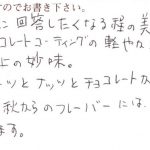 すのでお書き下さい。
に回答したくなる程の美
コレートコーティングの軽やか
上の妙味。
ーツとナッツとチョコレートが
秋からのフレーバーには、
ます。